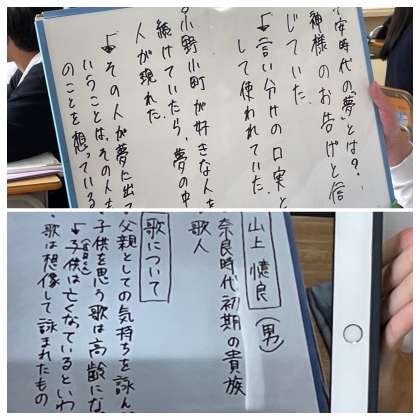 安時代の「夢」とは?
神様のお告げと信
じていた。
↓言い分けの口実と
して使われていた
小野小町が好きな人を
続けていたら、夢の中
人が現れた。
↓その人が夢に出て
いうことは、その人も
のことを想っている
山上憶良(男)
奈良時代初期の貴族
歌人
歌について
・父親としての気持ちを詠ん
・子供を思う歌は高齢にな
↓子供は亡くなているといわ
・歌は想像して詠まれたもの